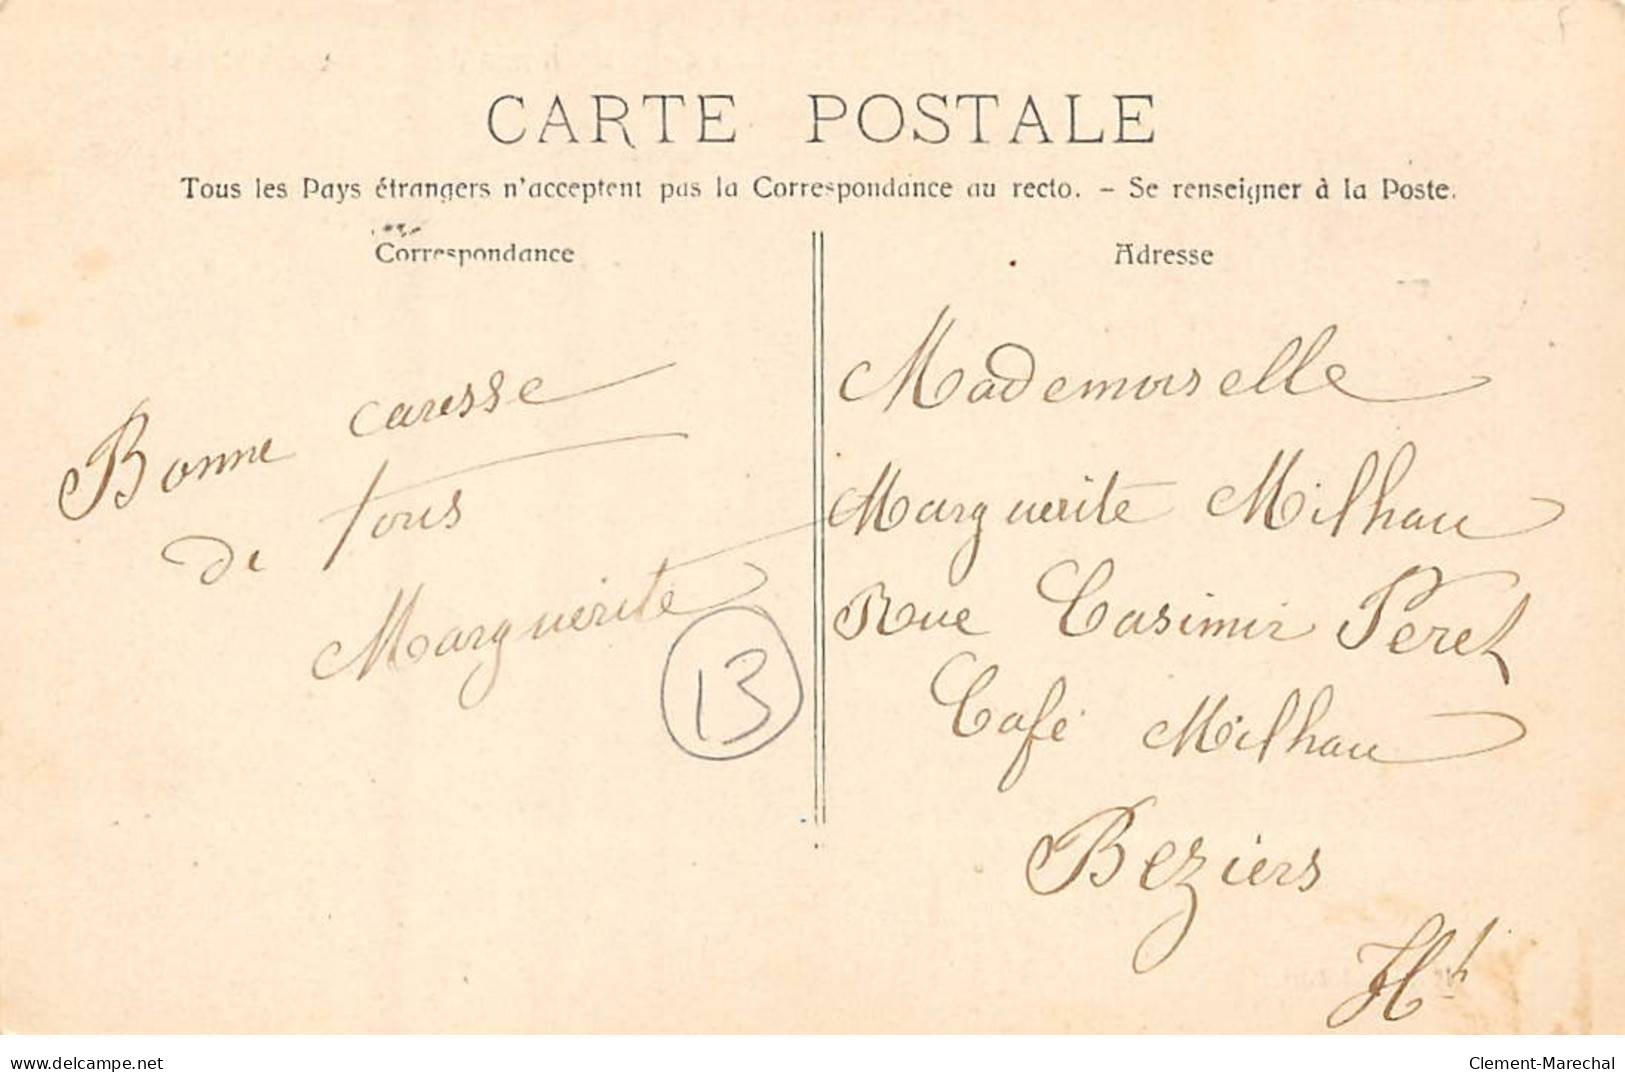 CARTE POSTALE
Tous les Pays étrangers n'acceptent pas la Correspondance au recto. – Se renseigner à la Poste.
Correspondance
Bonne caresse
de tous
Marguerite
13
Adresse
Mademoiselle
Marguerite Milhau
Rue Casimir Peret
Café Milhau
Beziers
Ht
delcampe.net
Clement-Marechal